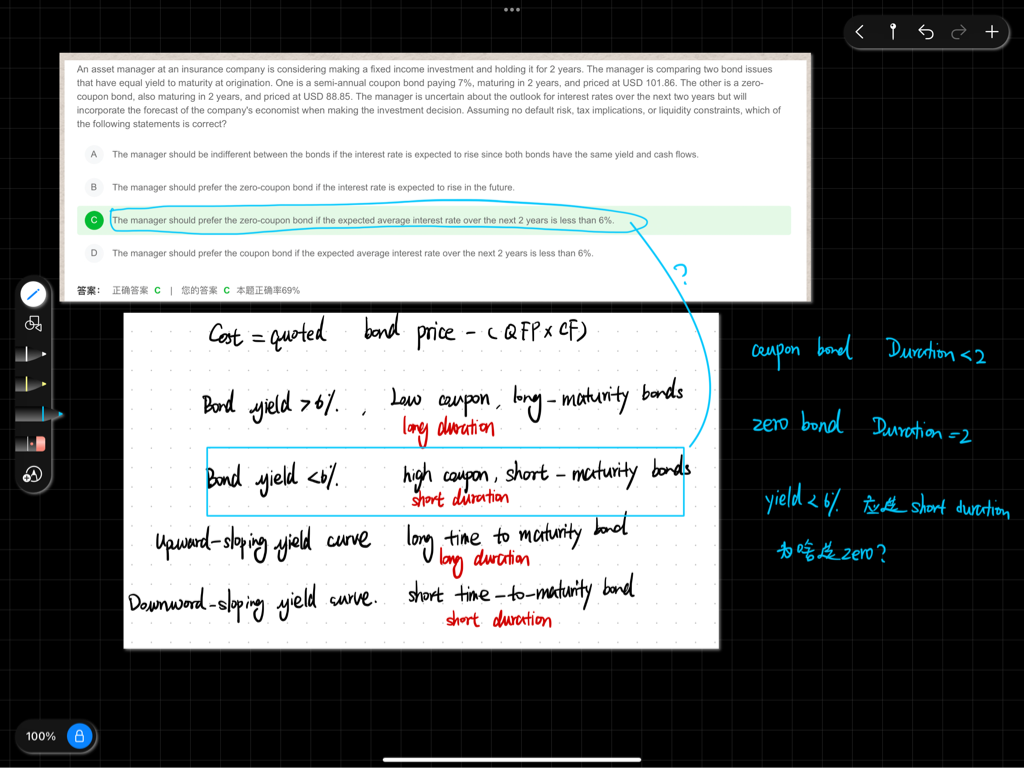 An asset manager at an insurance company is considering making a fixed income investment and holding it for 2 years. The manager is comparing two bond issues
that have equal yield to maturity at origination. One is a semi-annual coupon bond paying 7%, maturing in 2 years, and priced at USD 101.86. The other is a zero-
coupon bond, also maturing in 2 years, and priced at USD 88.85. The manager is uncertain about the outlook for interest rates over the next two years but will
incorporate the forecast of the company's economist when making the investment decision. Assuming no default risk, tax implications, or liquidity constraints, which of
the following statements is correct?
A The manager should be indifferent between the bonds if the interest rate is expected to rise since both bonds have the same yield and cash flows.
B The manager should prefer the zero-coupon bond if the interest rate is expected to rise in the future.
C The manager should prefer the zero-coupon bond if the expected average interest rate over the next 2 years is less than 6%.
D The manager should prefer the coupon bond if the expected average interest rate over the next 2 years is less than 6%.
答案: 正确答案 C | 您的答案 C 本题正确率69%
?
Cost = quoted bond price - (QFP x CF)
Bond yield >6%. , Low coupon, long-maturity bonds
long duration
Bond yield <6%. high coupon, short-maturity bonds
short duration
Upward-sloping yield curve long time to maturity bond
long duration
Downword-sloping yield curve. short time-to-maturity bond
short duration
coupon bond Duration <2
zero bond Duration =2
yield < 6% 应是 short duration
为啥是 zero?
100%